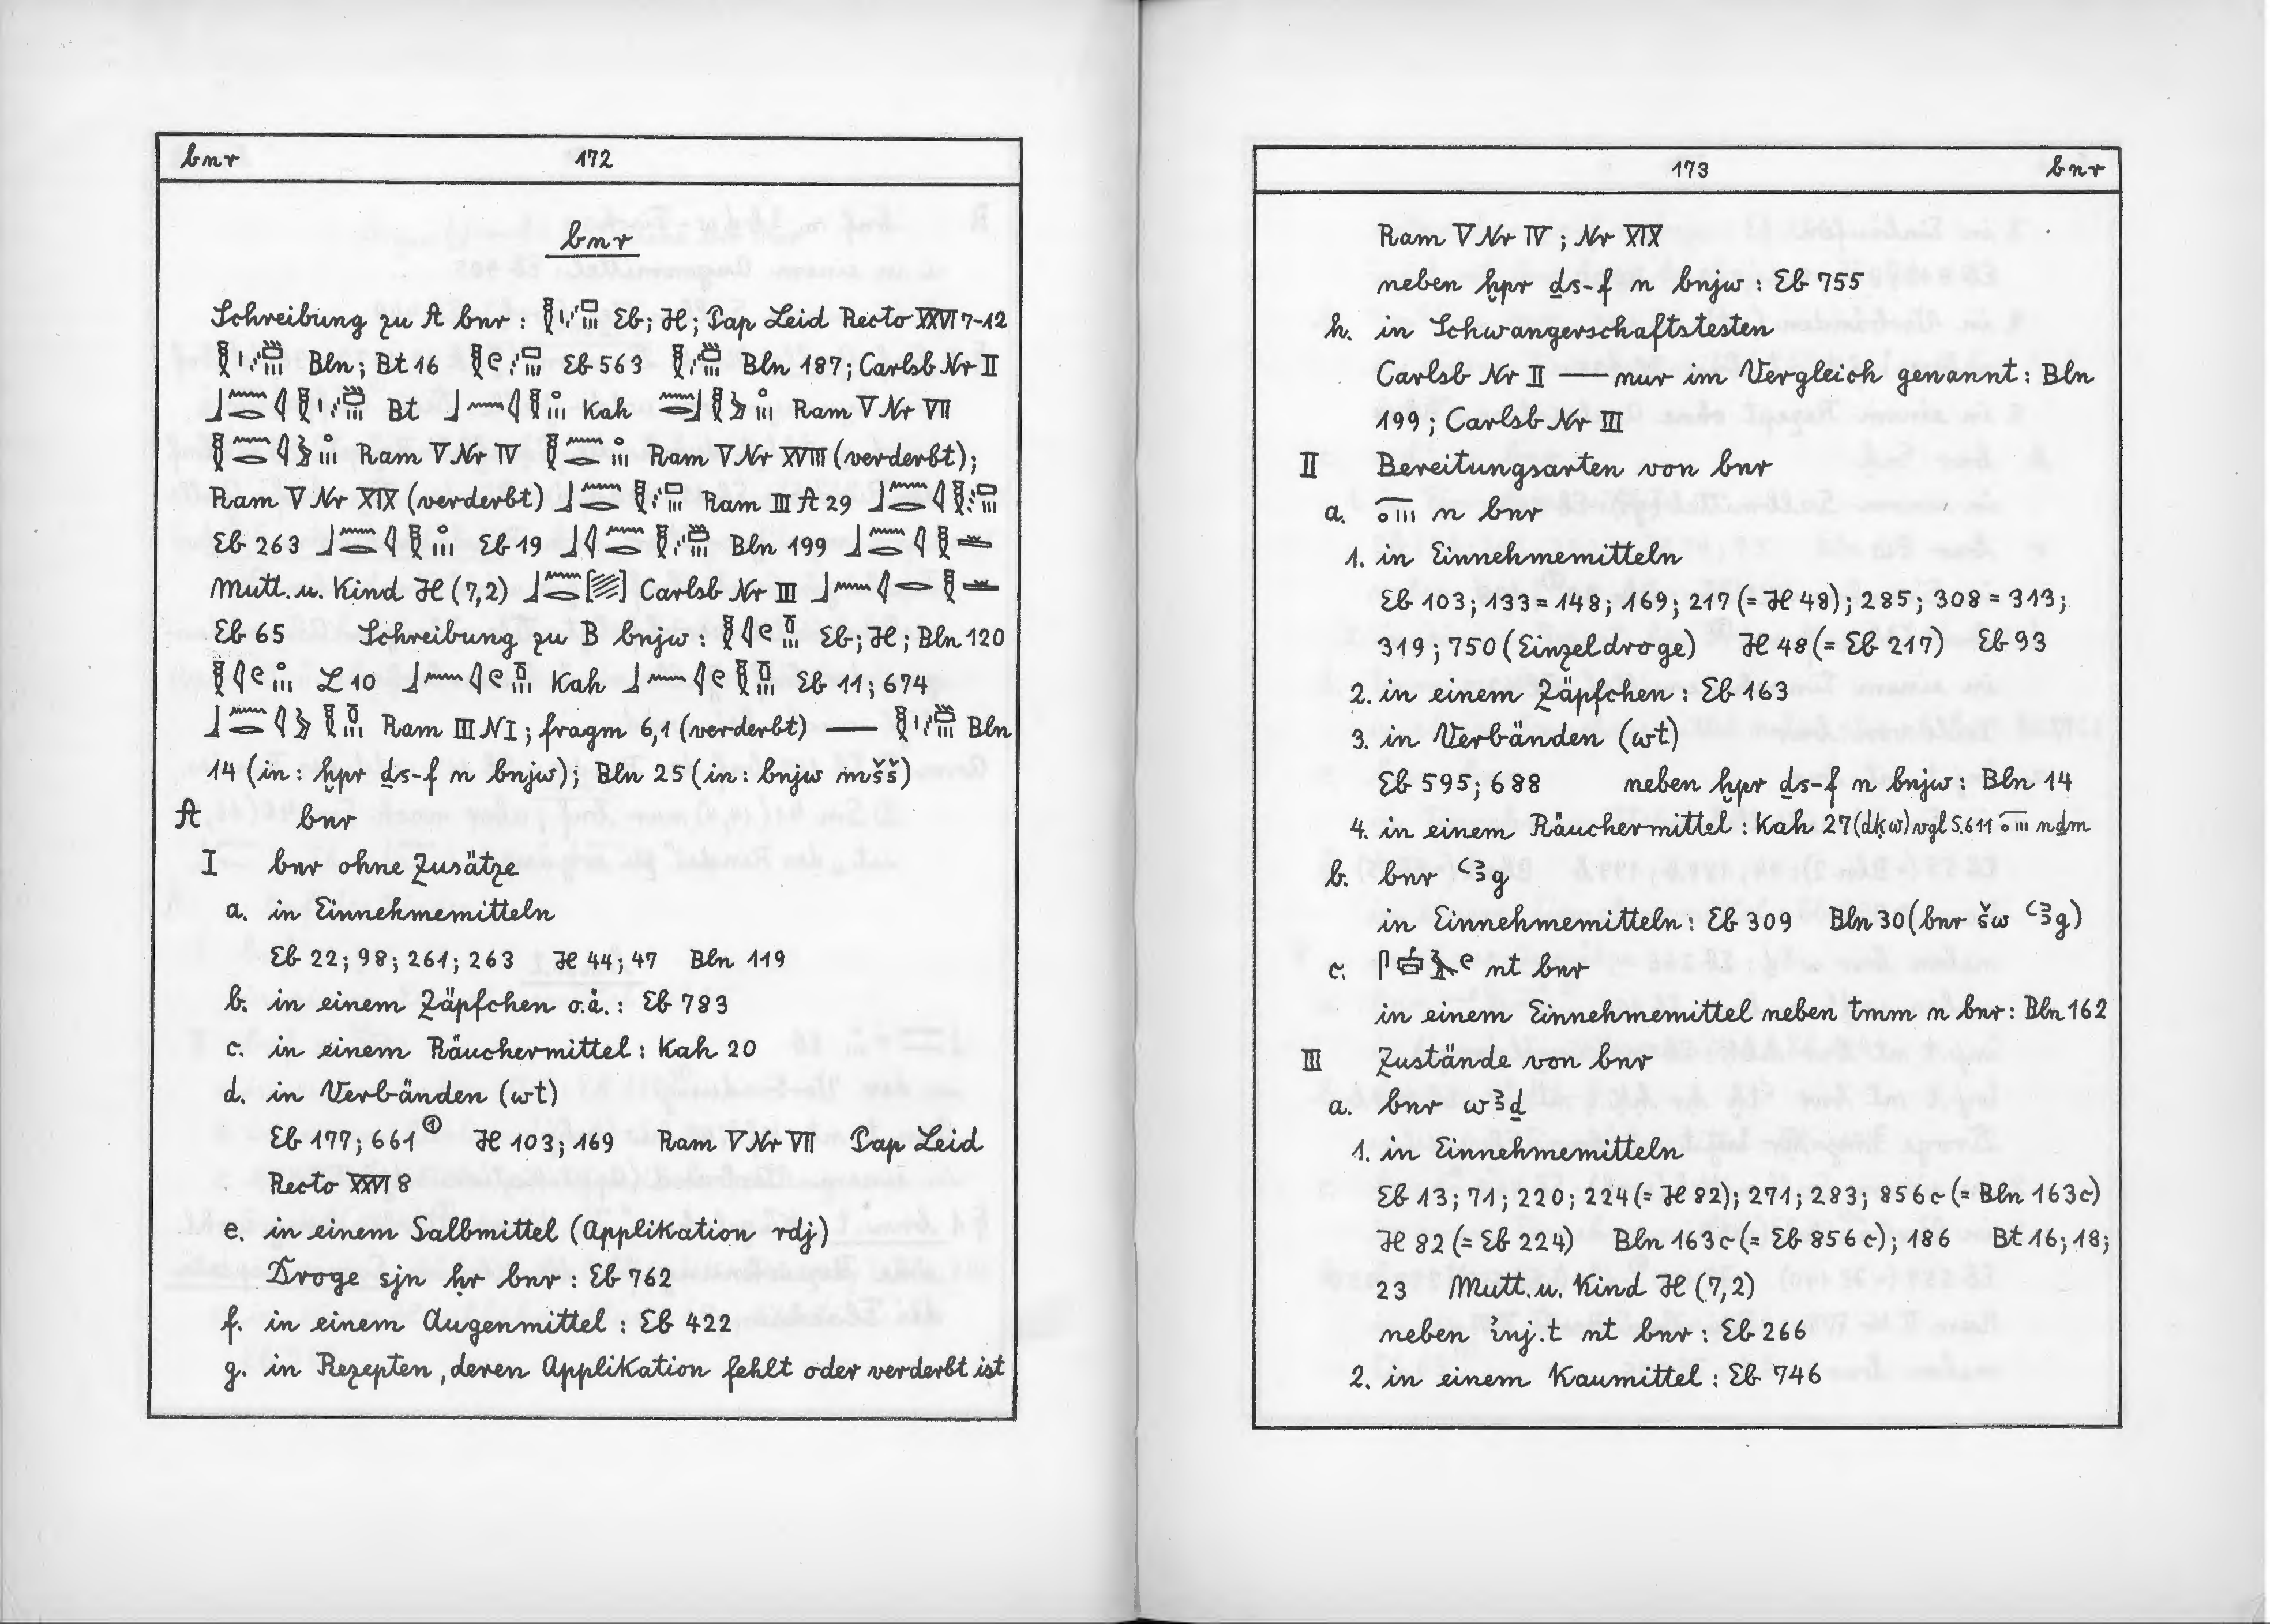 bnr 172
bnr
Schreibung zu A bnr : Eb; H; Pap Leid Recto XXVI 7-12
Bln; Bt 16 Eb 563 Bln 187; Carlsb Nr II
Bt Kah Ram V Nr VII
Ram V Nr IV Ram V Nr XVIII (verderbt);
Ram V Nr XIX (verderbt) Ram III A 29
Eb 263 Eb 19 Bln 199
Mutt. u. Kind H (7,2) Carlsb Nr III
Eb 65 Schreibung zu B bnjw : Eb; H; Bln 120
L 10 Kah Eb 11; 674
Ram III N I; fragm 6,1 (verderbt) — Bln
14 (in: ḫpr ḏs-f n bnjw); Bln 25 (in: bnjw šš)
A bnr
I bnr ohne Zusätze
a. in Einnehmemitteln
Eb 22; 98; 261; 263 H 44; 47 Bln 119
b. in einem Zäpfchen o.ä.: Eb 783
c. in einem Räuchermittel: Kah 20
d. in Verbänden (wt)
Eb 177; 661 ① H 103; 169 Ram V Nr VII Pap Leid
Recto XXVI 8
e. in einem Salbmittel (Applikation rdj)
Droge sjn ḥr bnr : Eb 762
f. in einem Augenmittel : Eb 422
g. in Rezepten, deren Applikation fehlt oder verderbt ist
173 bnr
Ram V Nr IV ; Nr XIX
neben ḫpr ḏs-f n bnjw : Eb 755
h. in Schwangerschaftstesten
Carlsb Nr II — nur im Vergleich genannt: Bln
199 ; Carlsb Nr III
II Bereitungsarten von bnr
a. n bnr
1. in Einnehmemitteln
Eb 103; 133 = 148; 169; 217 (= H 48); 285; 308 = 313;
319; 750 (Einzeldroge) H 48 (= Eb 217) Eb 93
2. in einem Zäpfchen : Eb 163
3. in Verbänden (wt)
Eb 595; 688 neben ḫpr ḏs-f n bnjw : Bln 14
4. in einem Räuchermittel : Kah 27 (dḳw) vgl S.611 nḏm
b. bnr ꜥꜣg
in Einnehmemitteln: Eb 309 Bln 30 (bnr šw ꜥꜣg)
c. nt bnr
in einem Einnehmemittel neben tmm n bnr: Bln 162
III Zustände von bnr
a. bnr wꜣḏ
1. in Einnehmemitteln
Eb 13; 71; 220; 224 (= H 82); 271; 283; 856c (= Bln 163c)
H 82 (= Eb 224) Bln 163c (= Eb 856c); 186 Bt 16; 18;
23 Mutt. u. Kind H (7,2)
neben ꞽnj.t nt bnr : Eb 266
2. in einem Kaumittel : Eb 746